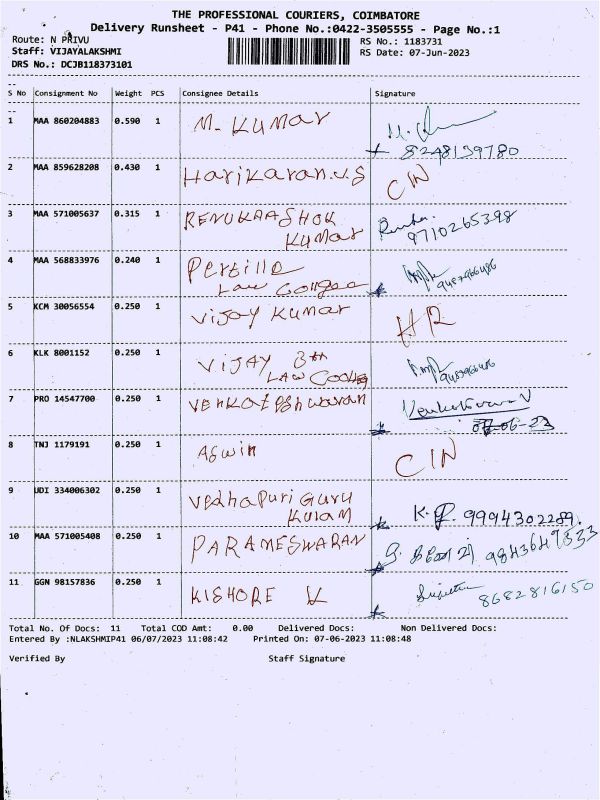 THE PROFESSIONAL COURIERS, COIMBATORE
Delivery Runsheet - P41 - Phone No.:0422-3505555 - Page No.:1
Route: N PRIVU
RS No.: 1183731
Staff: VIJAYALAKSHMI
RS Date: 07-Jun-2023
DRS No.: DCJB118373101
S No Consignment No Weight PCS Consignee Details Signature
1 MAA 860204883 0.590 1 M. KUMAR
8248139780
2 MAA 859628208 0.430 1 Harikaran.v.s CIN
3 MAA 571005637 0.315 1 RENUKAASHOK
KUMAR 9710265398
4 MAA 568833976 0.240 1
Law
5 KCM 30056554 0.250 1 Vijay Kumar HR
6 KLK 8001152 0.250 1 VIJAY 3th
LAW
7 PRO 14547700 0.250 1 Venkateshwaran Venkateswaran V
07-06-23
8 TNJ 1179191 0.250 1 Aswin CIN
9 UDI 334006302 0.250 1 Vedhapuri Guru
Kulam 9994302289.
10 MAA 571005408 0.250 1 PARAMESWARAN
11 GGN 98157836 0.250 1 KISHORE K
8682816150
Total No. Of Docs: 11 Total COD Amt: 0.00 Delivered Docs: Non Delivered Docs:
Entered By :NLAKSHMIP41 06/07/2023 11:08:42 Printed On: 07-06-2023 11:08:48
Verified By Staff Signature